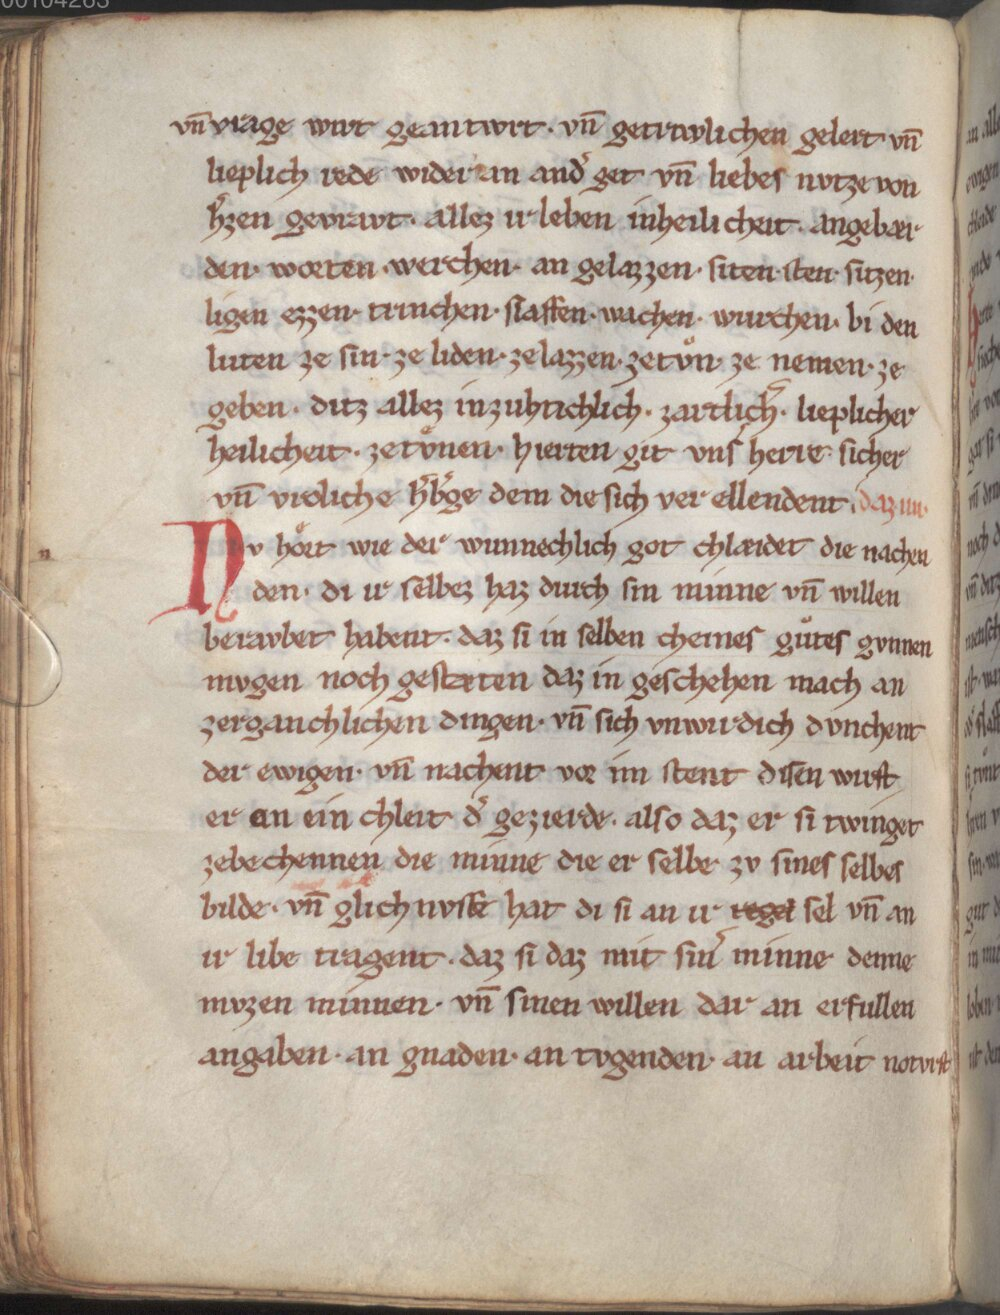 00104263
vn̄ vrage wirt geantwrt · vn̄ getriwlichen gelert vn̄
lieplich rede wider an and᷑ get vn̄ liebes nvtze von
h᷑zen gevrawt · allez ir leben inheilicheit · angebær
den · worten · werchen · an gelazzen · siten · sten · sitzen ·
ligen ezzen · trinchen · slaffen · wachen · wurchen · bi den
luten ze sin · ze liden · ze lazzen · ze tv̊n · ze nemen · ze
geben · ditz allez inzuhtichlich · zartlich᷑ · lieplicher
heilicheit · ze tv̊nen · hierten git vns herre sicher
vn̄ vroliche h᷑b᷑ge dem die sich ver ellendent · daz iiii ·
Nv hoͤrt wie der wunnechlich got chlæidet die nachen
den · di ir selbez haz durch sin minne vn̄ willen
beravbet habent · daz si in selben cheines gůtes gvnnen
mvgen noch gestæten daz in geschehen mach an
zerganchlichen dingen · vn̄ sich vnwirdich dvnchent
der ewigen · vn̄ nachent vor im stent disen wirft
er an ein chleit d᷑ gezierde · also daz er si twinget
ze bechennen die minne die er selbe zv sines selbes
bilde · vn̄ glichnvsse hat di si an ir regel sel vn̄ an
ir libe tragent · daz si daz mit sin᷑ minne denne
mvzen minnen · vn̄ sinen willen dar an erfullen
angaben · an gnaden · an tvgenden · an arbeit notvrft